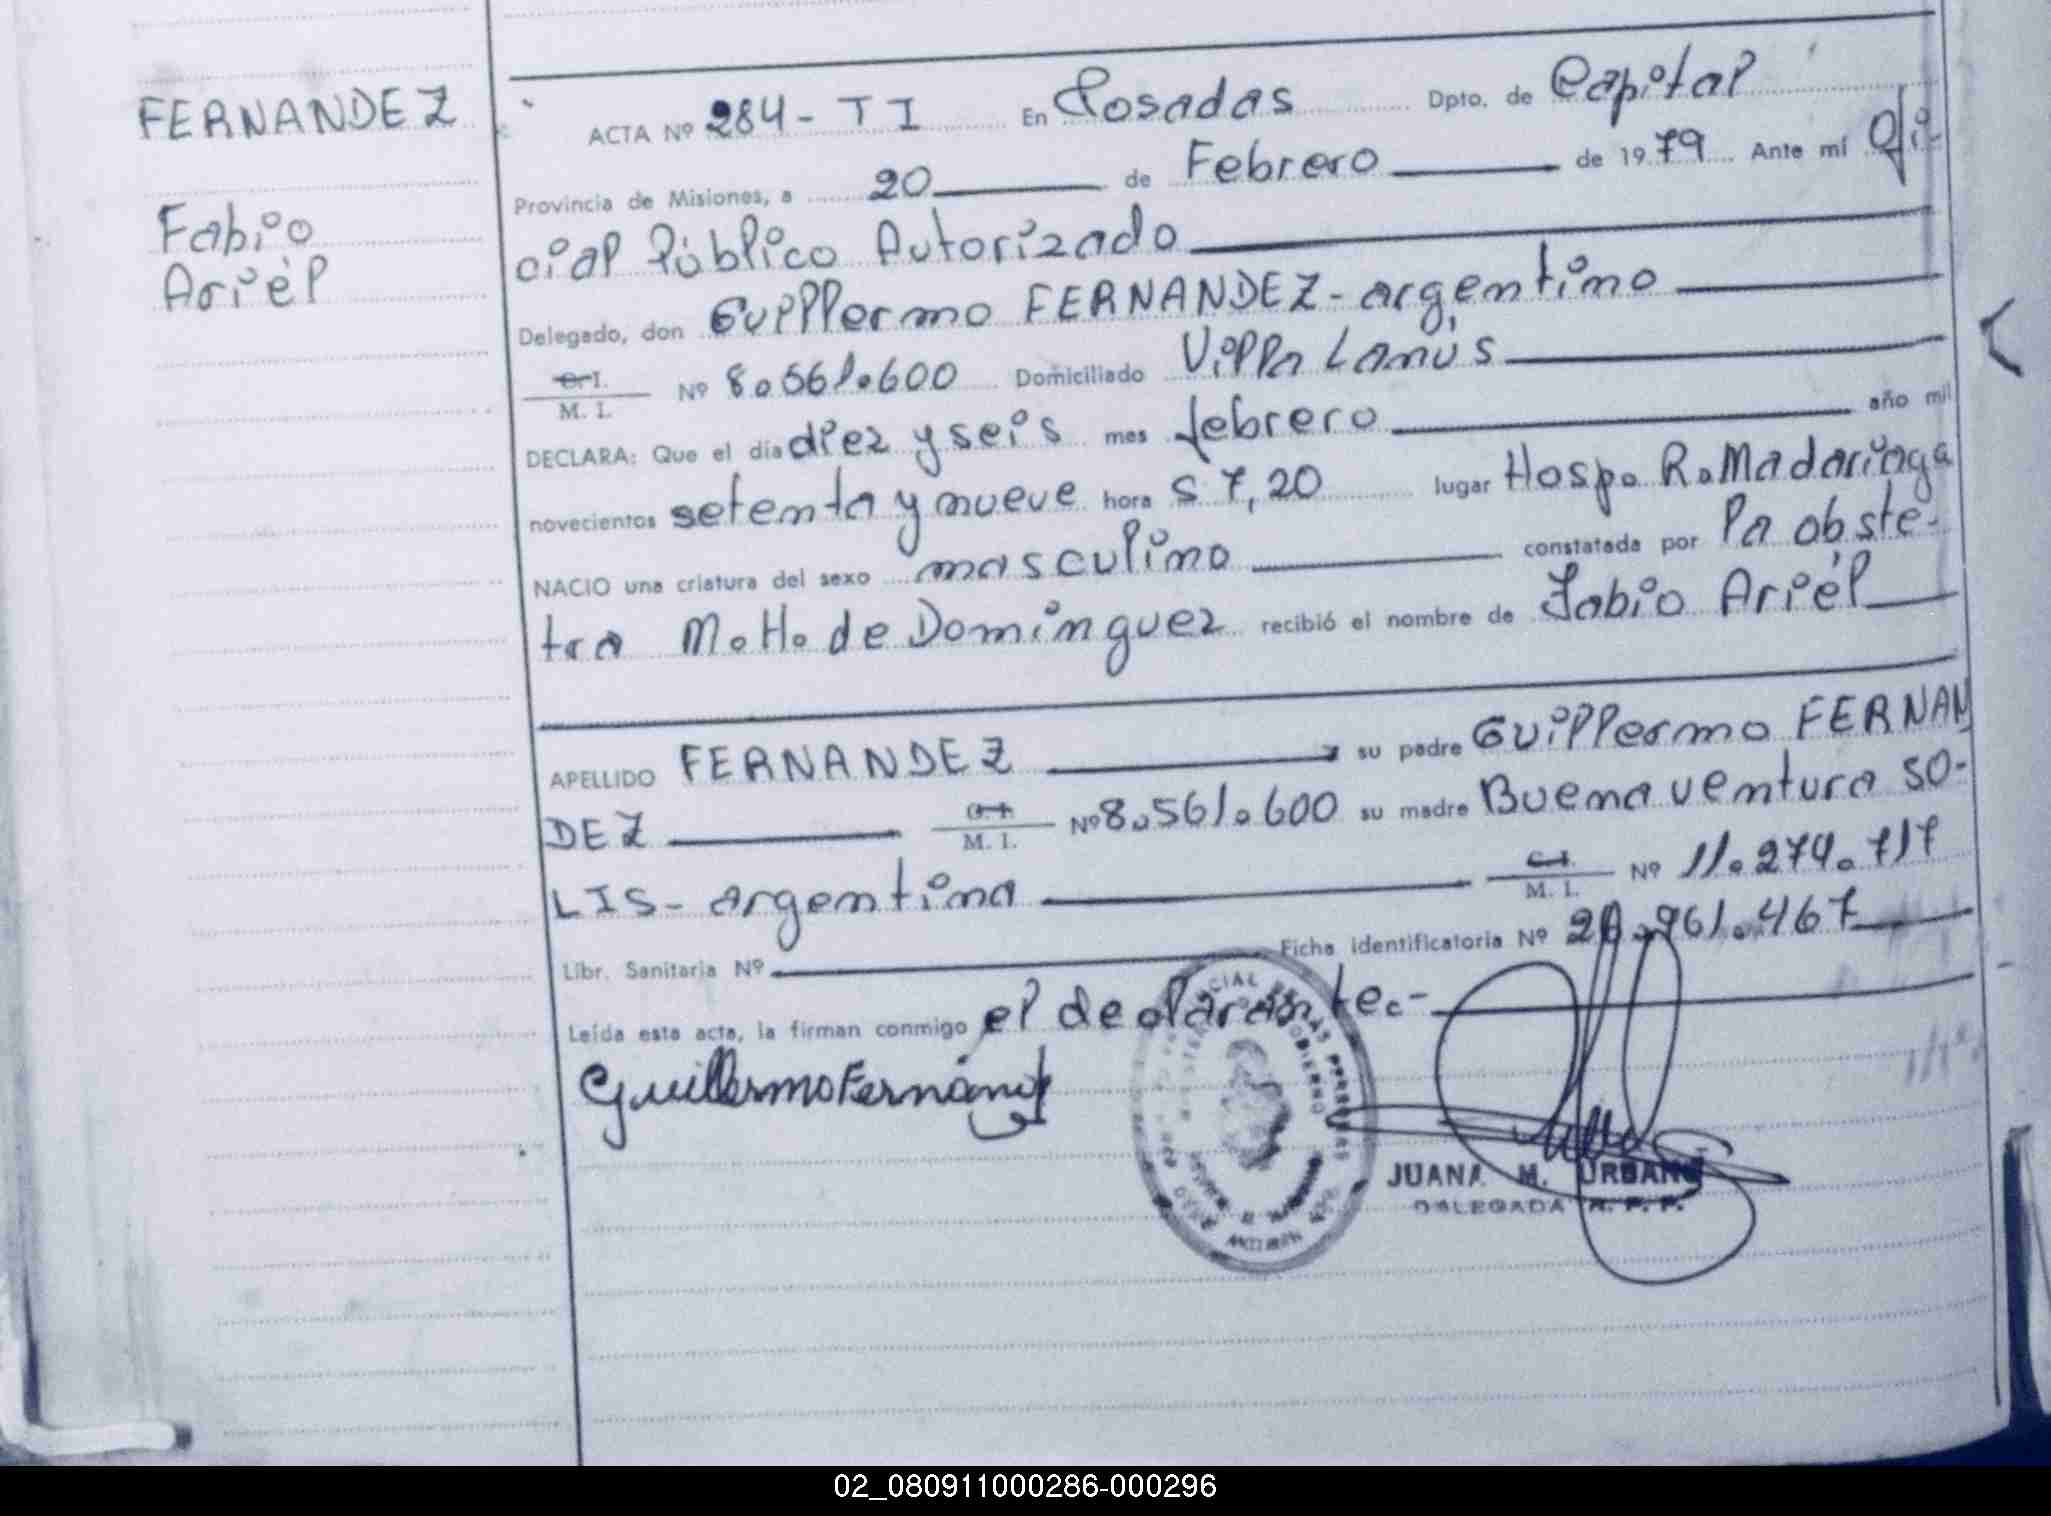 FERNANDEZ
Fabio
Ariél
ACTA Nº 284 - T I En Posadas Dpto. de Capital
Provincia de Misiones, a 20 de Febrero de 1979 Ante mí Ofi-
cial Público Autorizado
Delegado, don Guillermo FERNANDEZ - argentino
C. I. M. I. Nº 8.561.600 Domiciliado Villa Lanús
DECLARA: Que el día diez y seis mes febrero año mil
novecientos setenta y nueve hora s 7,20 lugar Hosp. R. Madariaga
NACIO una criatura del sexo masculino constatada por la obste-
tra M. H. de Domínguez recibió el nombre de Fabio Ariél
APELLIDO FERNANDEZ su padre Guillermo FERNAN
DEZ C. I. M. I. Nº 8.561.600 su madre Buenaventura SO-
LIS - argentina C. I. M. I. Nº 11.274.717
Libr. Sanitaria Nº Ficha identificatoria Nº 26.961.467
Leída esta acta, la firman conmigo el declarante.-
Guillermo Fernández
JUANA M. URBANO
DELEGADA R. P. P.
02_080911000286-000296